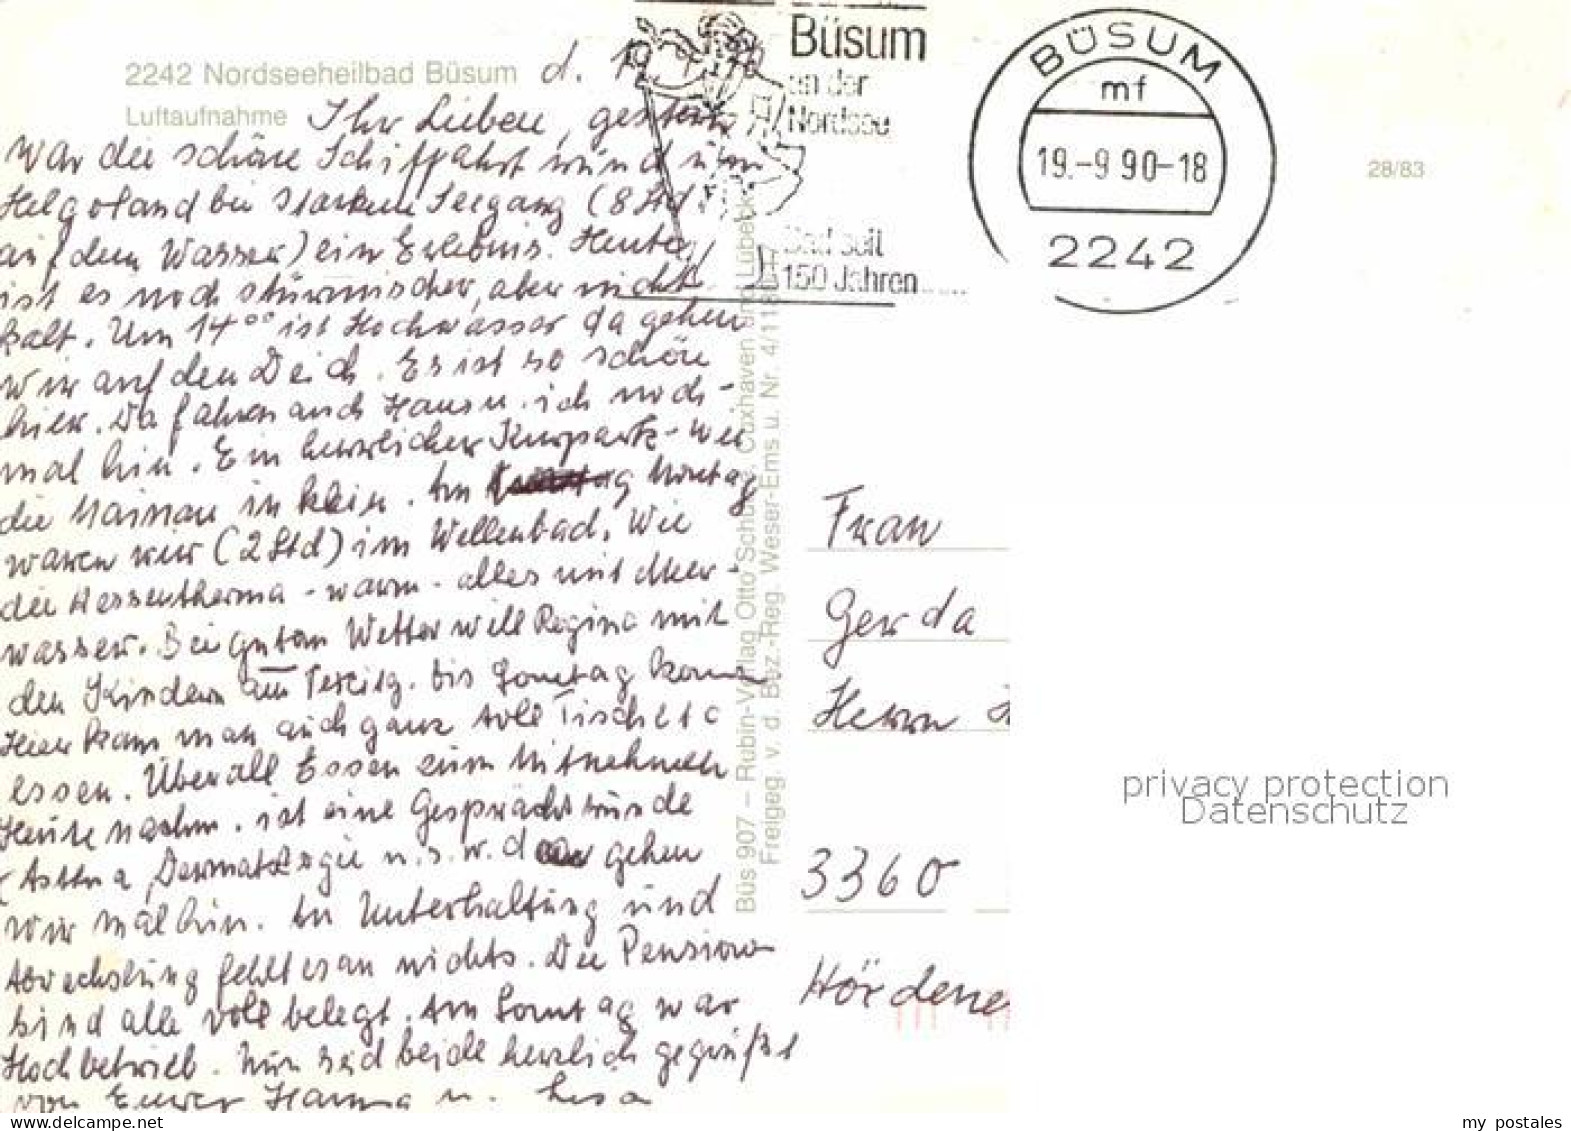 2242 Nordseeheilbad Büsum
Luftaufnahme
d.
Ihr Lieben, gestern
war die schöne Schiffahrt rund um
Helgoland bei starkem Seegang (8 Std.
auf dem Wasser) ein Erlebnis. Heute
ist es noch stürmischer, aber nicht
kalt. Um 14°° ist Hochwasser da gehen
wir auf den Deich. Es ist so schön
hier. Da fahren auch Hans u. ich noch-
mal hin. Ein herrlicher Kurpark - wie
die Mainau in klein. Am Montag
waren wir (2 Std) im Wellenbad. Wie
die Hessentherma - warm - alles mit Meer-
wasser. Bei gutem Wetter will Regina mit
den Kindern am Freitg. bis Sonntag
Hier kann man auch ganz toll Fisch etc
essen. Überall Essen zum Mitnehmen
Heute nachm. ist eine Gesprächsrunde
(Asthma, Dermatologie u.s.w. da gehen
wir mal hin. An Unterhaltung und
Abwechslung fehlt es an nichts. Die Pension
sind alle voll belegt. Am Sonntag war
Hochbetrieb. Nun seid beide herzlich gegrüßt
von Eurer Hanna u.
Büs 907 – Rubin-Verlag Otto Cuxhaven und Lübeck
Freigeg. v. d. Bez.-Reg. Weser-Ems u. Nr. 4/11
Büsum
an der
Nordsee
Bad seit
150 Jahren
BÜSUM
mf
19.-9 90-18
2242
28/83
Frau
Gerda
Herrn
3360
Hördene
privacy protection
Datenschutz
my postales